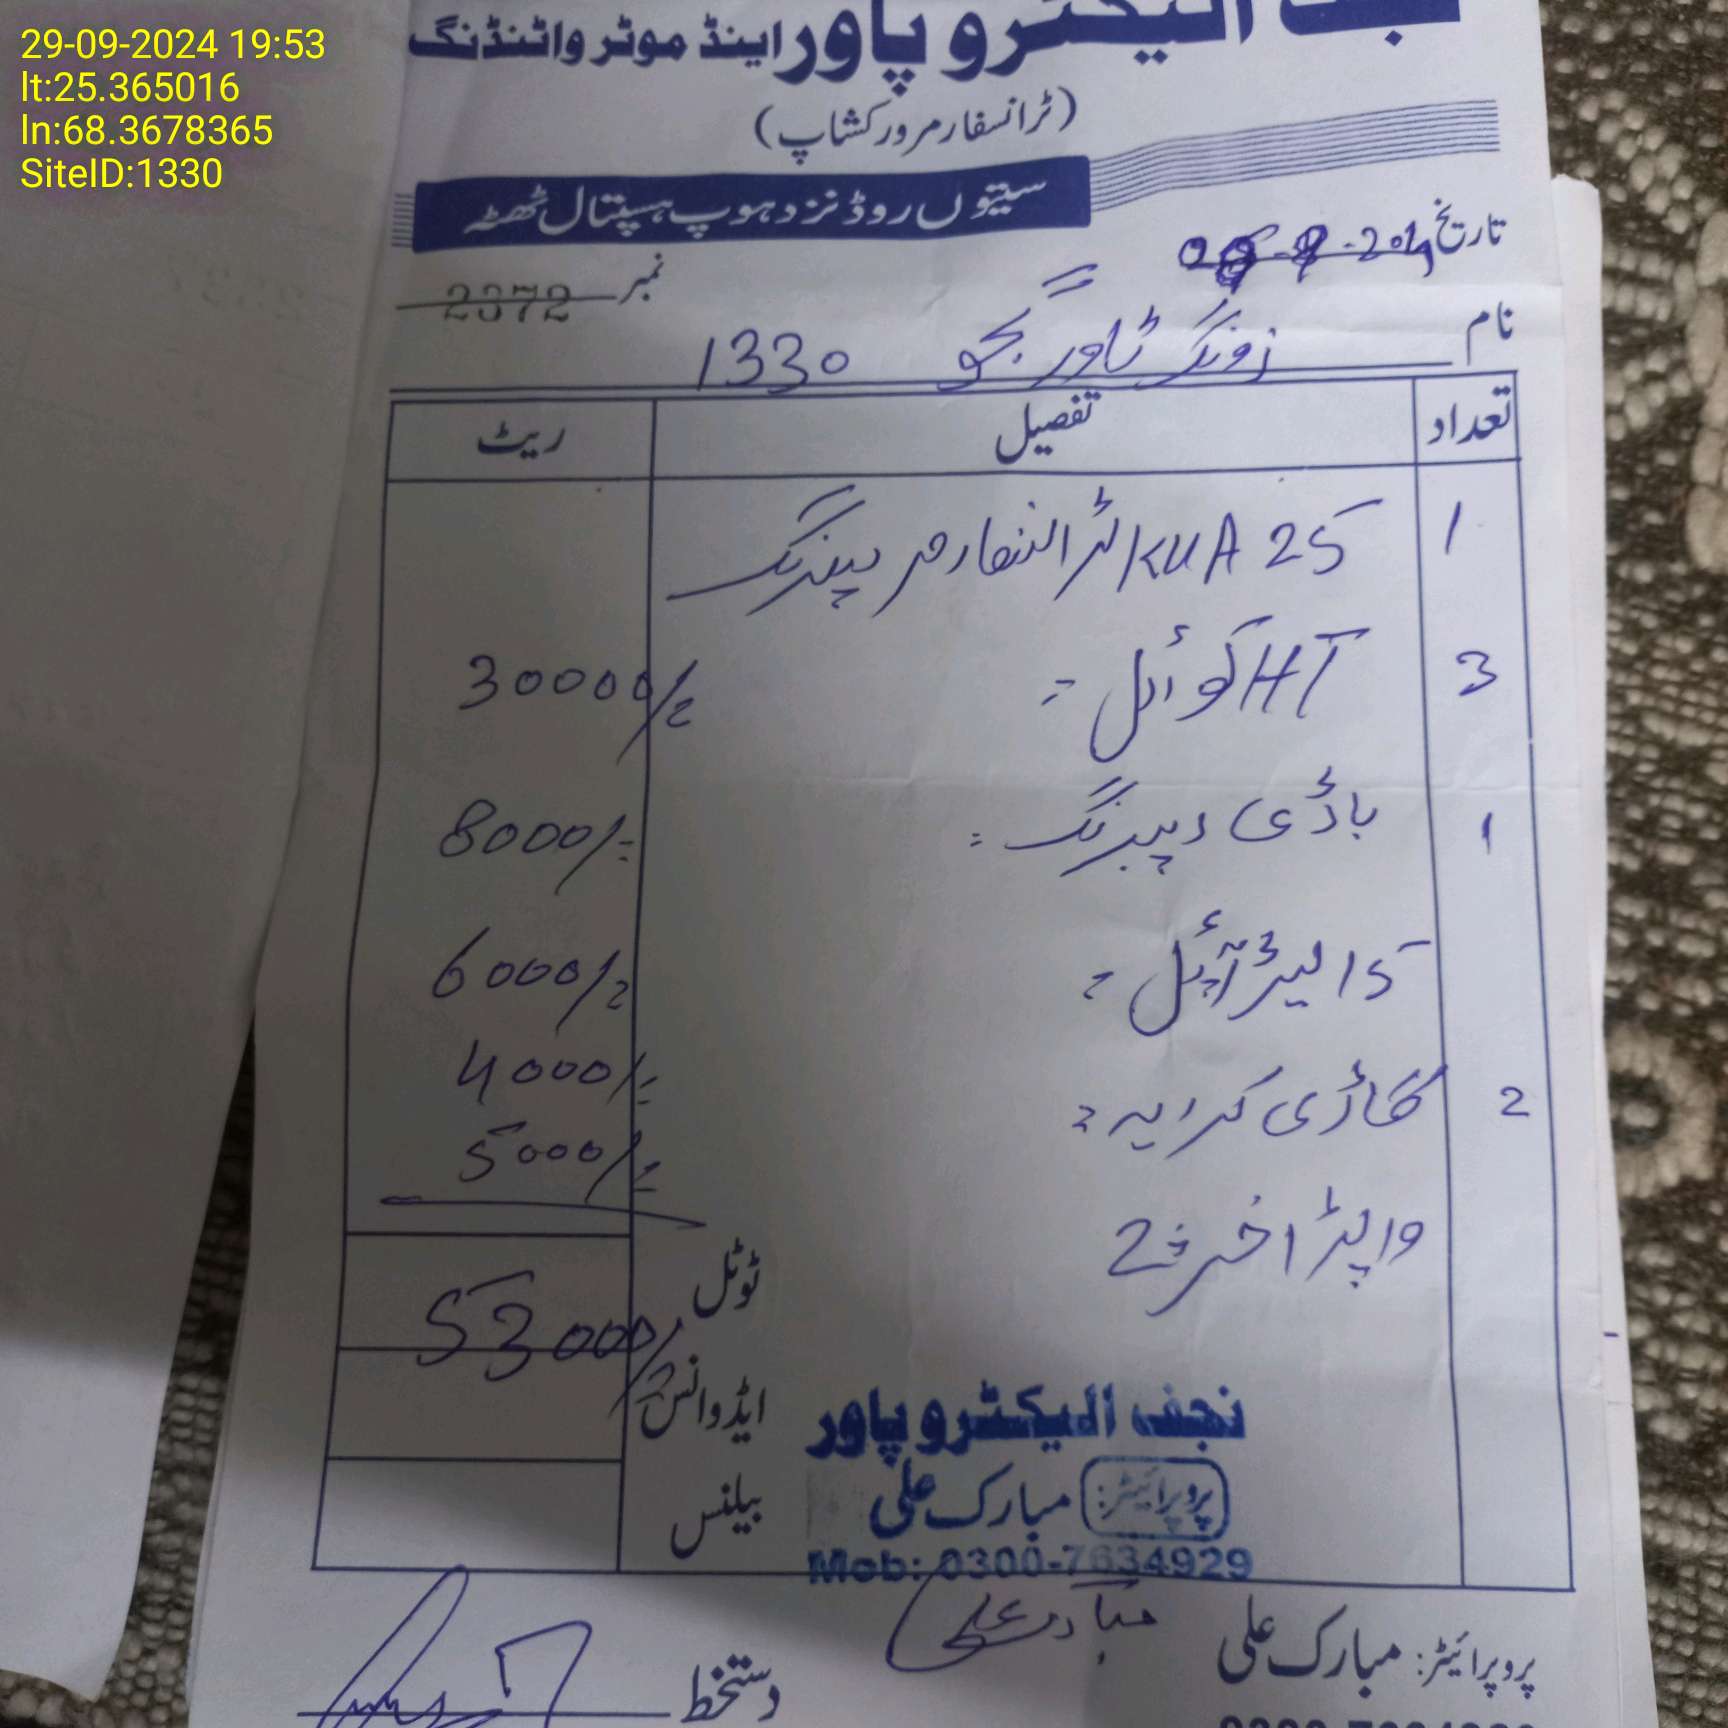 29-09-2024 19:53
lt:25.365016
ln:68.3678365
SiteID:1330
نجف الیکٹرو پاور اینڈ موٹر وائنڈنگ
(ٹرانسفارمر ورکشاپ)
سیتوں روڈ نزد ہوپ ہسپتال ٹھٹہ
تاریخ
نمبر 2372
نام زونگ ٹاور بجو 1330
تعداد تفصیل ریٹ
1 25 KVA ٹرانسفارمر
3 HT کوائل = 30000/=
1 باڈی رپیرنگ = 8000/=
15 لیٹر آئل = 6000/=
2 گاڑی کرایہ = 4000/=
واپڈا خرچہ 5000/=
ٹوٹل 53000/=
ایڈوانس
بیلنس
نجف الیکٹرو پاور
پروپرائیٹر: مبارک علی
Mob: 0300-7634929
مبارک علی
پروپرائیٹر: مبارک علی
دستخط